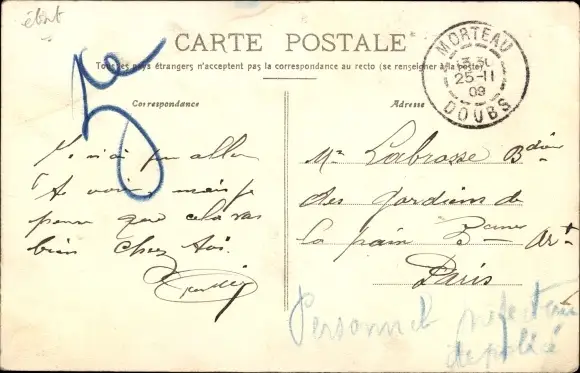 ébist
3e
CARTE POSTALE
Tous les pays étrangers n'acceptent pas la correspondance au recto (se renseigner à la poste)
MORTEAU
3 30
25-11
09
DOUBS
Correspondance
Adresse
Je n'ai pu aller
te voir, mais je
pense que cela va
bien chez toi.
Mr Labrosse Bdier
des gardiens de
la paix 3eme Art
Paris
Personnel
de police